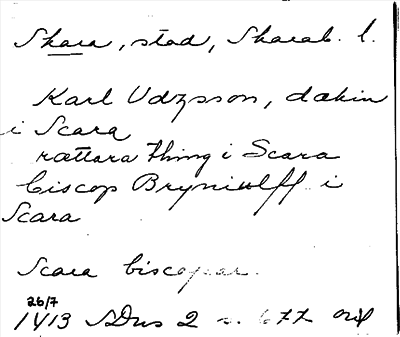 Skara, stad, Skarab. l.
Karl Udzsson, dækin
i Scara
rættara thing i Scara
biscop Bryniulff i
Scara
Scara biscopar.
26/7
1413 SDns 2 s. 677 orig